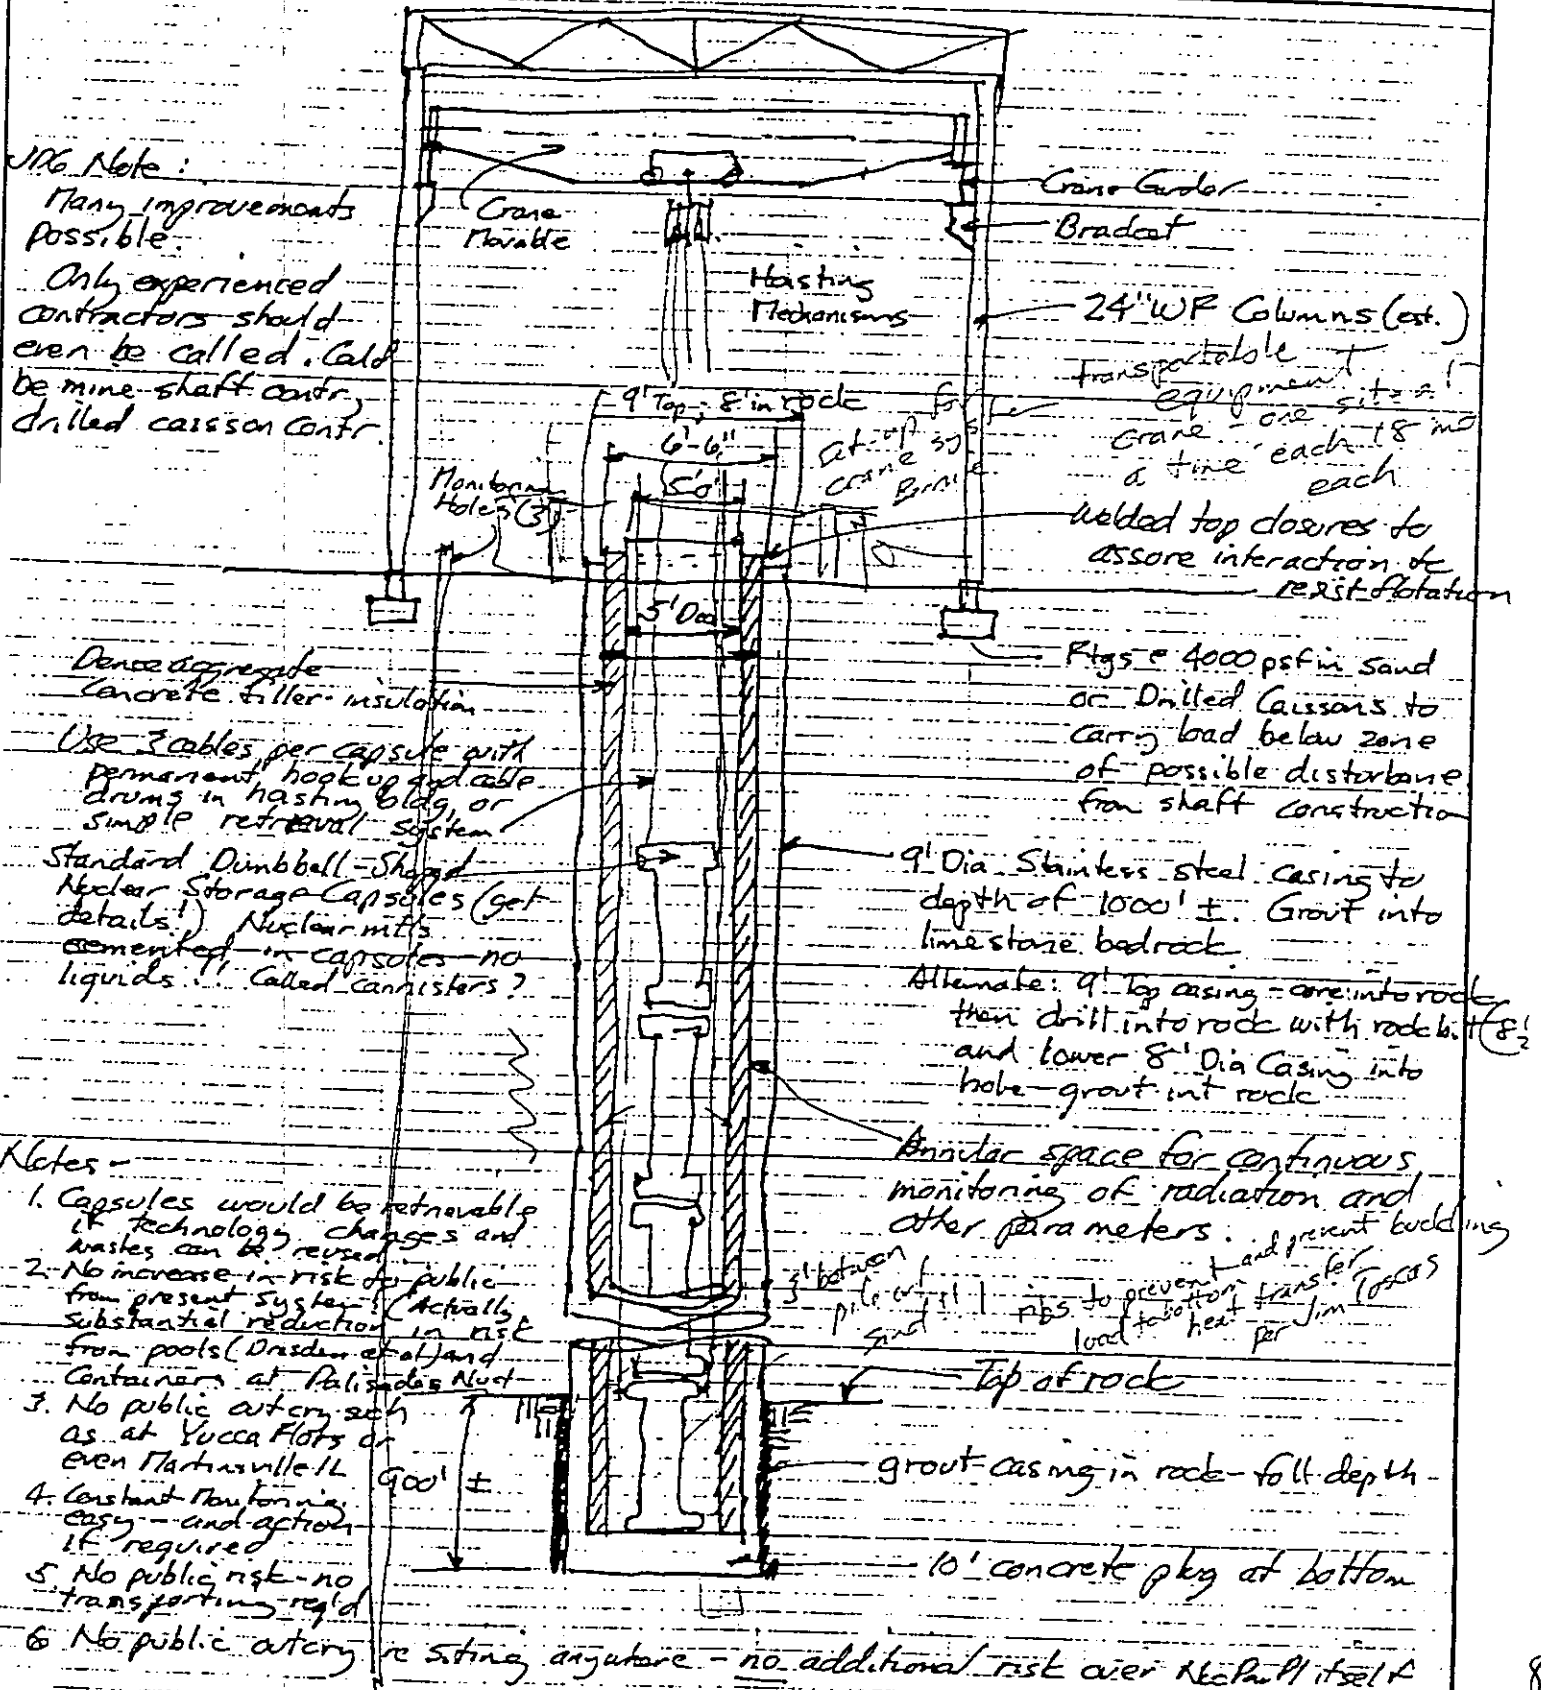 JDG Note:
Many improvements
possible.
Only experienced
contractors should
even be called. Could
be mine shaft contr,
drilled caisson contr.
Crane
Movable
Hoisting
Mechanisms
Crane Girder
Bracket
24" WF Columns (est.)
Transportable
equipment
crane - one site at
a time each 18 mo
each
9' Top, 8' in rock
6'-6"
5'0"
set-up for
crane
Monitoring
Holes (3)
Welded top closures to
assure interaction to
resist flotation
5' Dia
Ftgs @ 4000 psf in sand
or Drilled Caissons to
carry load below zone
of possible disturbance
from shaft construction
Dense aggregate
Concrete filler-insulation
Use 3 cables per capsule with
permanent hookup and cable
drums in hoisting bldg, or
simple retrieval system
Standard Dumbbell-Shaped
Nuclear Storage Capsules (get
details!) Nuclear mtls
cemented in capsules - no
liquids!! Called cannisters?
9' Dia Stainless steel casing to
depth of 1000' ±. Grout into
limestone bedrock
Alternate: 9' Top casing - core into rock
then drill into rock with rock bit (8½'
and lower 8' Dia Casing into
hole - grout int rock
Annular space for continuous
monitoring of radiation and
other parameters.
3' between
sand
ribs to prevent and prevent buckling
load to bottom heat transfer
per Jim
Notes -
1. Capsules would be retrievable
if technology changes and
wastes can be reused
2. No increase in risk to public
from present system! (Actually
substantial reduction in risk
from pools (Dresden et al) and
Containers at Palisades Nucl
3. No public outcry such
as at Yucca Flats or
even Martinsville IL
4. Constant Monitoring
easy - and action
if required
5. No public risk - no
transporting req'd
6 No public outcry re siting anywhere - no additional risk over NucPwrPl itself
900' ±
Top of rock
grout casing in rock - full depth
10' concrete plug at bottom
8